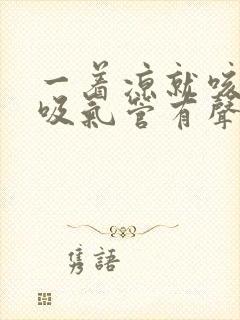 一着凉就咳
吸氣管有聲
隽語